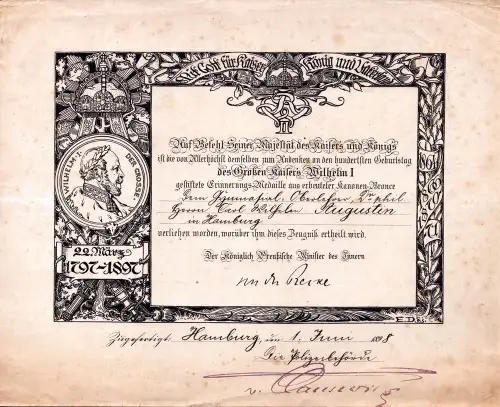 Mit Gott für Kaiser König und Vaterland
WILHELM I. DER GROSSE.
22. März
1797-1897
Auf Befehl Seiner Majestät des Kaisers und Königs
ist die von Allerhöchst demselben zum Andenken an den hundertsten Geburtstag
des Großen Kaisers Wilhelm I
gestiftete Erinnerungs-Medaille aus erbeuteter Kanonen-Bronce
dem Gymnasial-Oberlehrer Dr. phil
Herrn Carl Wilhelm Augustin
in Hamburg
verliehen worden, worüber ihm dieses Zeugniß ertheilt wird.
Der Königlich Preußische Minister des Innern
von der Recke
E D
Zugefertigt Hamburg, am 1. Juni 1898
Die Polizeibehörde
v.